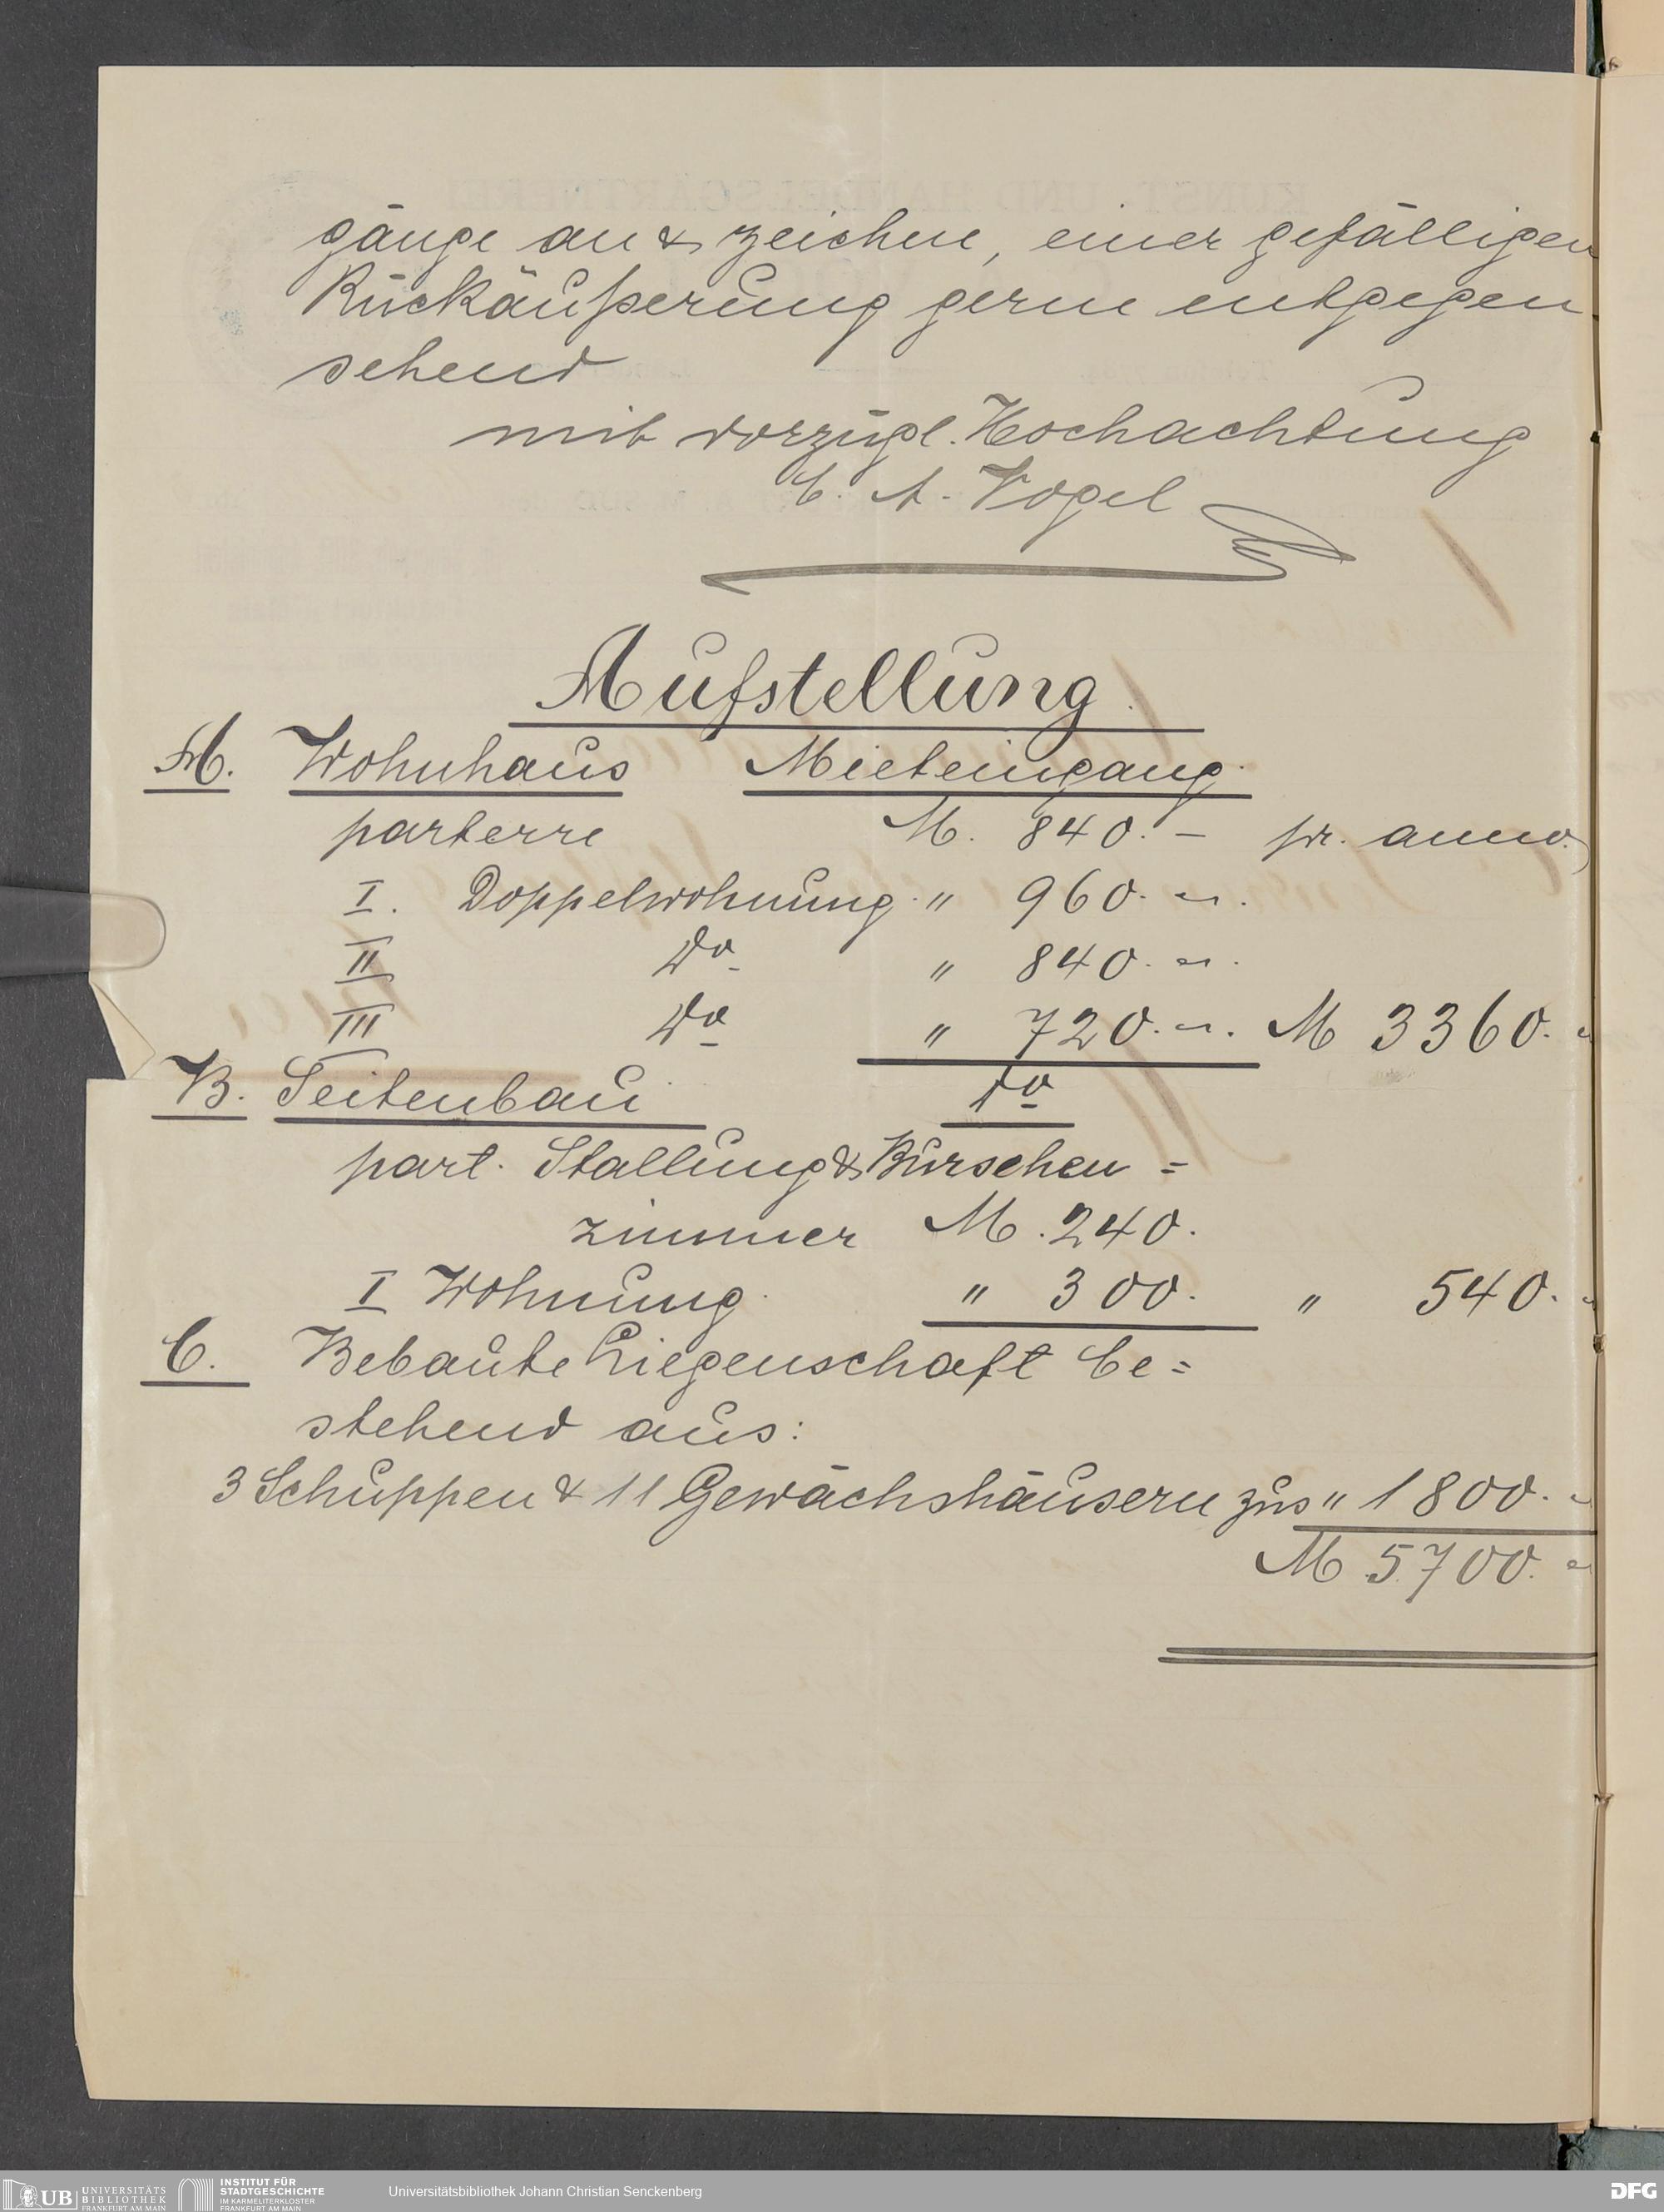 gänge an & zeichne, einer gefälligen
Rückäußerung gerne entgegen
sehend
mit vorzügl. Hochachtung
C. A. Vogel
Aufstellung.
A. Wohnhaus Mieteingang.
parterre M. 840.- pr. anno.
I. Doppelwohnung " 960.-.
II do " 840.-.
III do " 720.-. M 3360.-
B. Seitenbau do
part. Stallung & Burschen =
zimmer M. 240.
I Wohnung. " 300. " 540.-
C. Bebaute Liegenschaft be=
stehend aus:
3 Schuppen & 11 Gewächshäusern zus " 1800.-
M 5700.-
UB UNIVERSITÄTS BIBLIOTHEK FRANKFURT AM MAIN
INSTITUT FÜR STADTGESCHICHTE IM KARMELITERKLOSTER FRANKFURT AM MAIN
Universitätsbibliothek Johann Christian Senckenberg
DFG